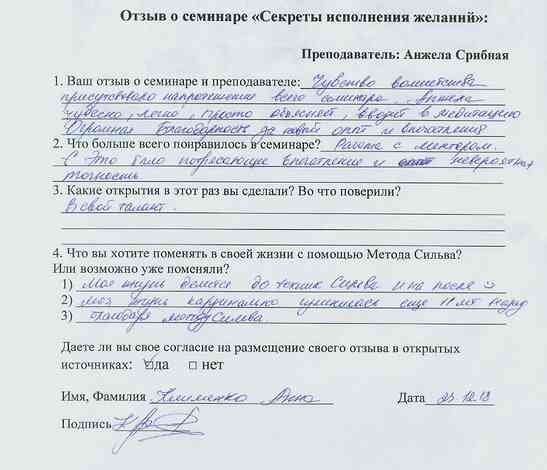 Отзыв о семинаре «Секреты исполнения желаний»:
Преподаватель: Анжела Срибная
1. Ваш отзыв о семинаре и преподавателе: Чувство волшебства
присутствовало на протяжении всего семинара. Анжела
чудесно, легко, просто объясняет, вводит в медитацию
Огромная благодарность за новый опыт и впечатления
2. Что больше всего понравилось в семинаре? Работа с ментором.
Это было потрясающее впечатление и невероятная
точность
3. Какие открытия в этот раз вы сделали? Во что поверили?
В свой талант.
4. Что вы хотите поменять в своей жизни с помощью Метода Сильва?
Или возможно уже поменяли?
1) Моя жизнь делится до техник Сильва и на после
2) Моя жизнь кардинально изменилась еще 11 лет назад
3) благодаря методу Сильва.
Даете ли вы свое согласие на размещение своего отзыва в открытых
источниках: да нет
Имя, Фамилия Клименко Анна Дата 23.12.18
Подпись